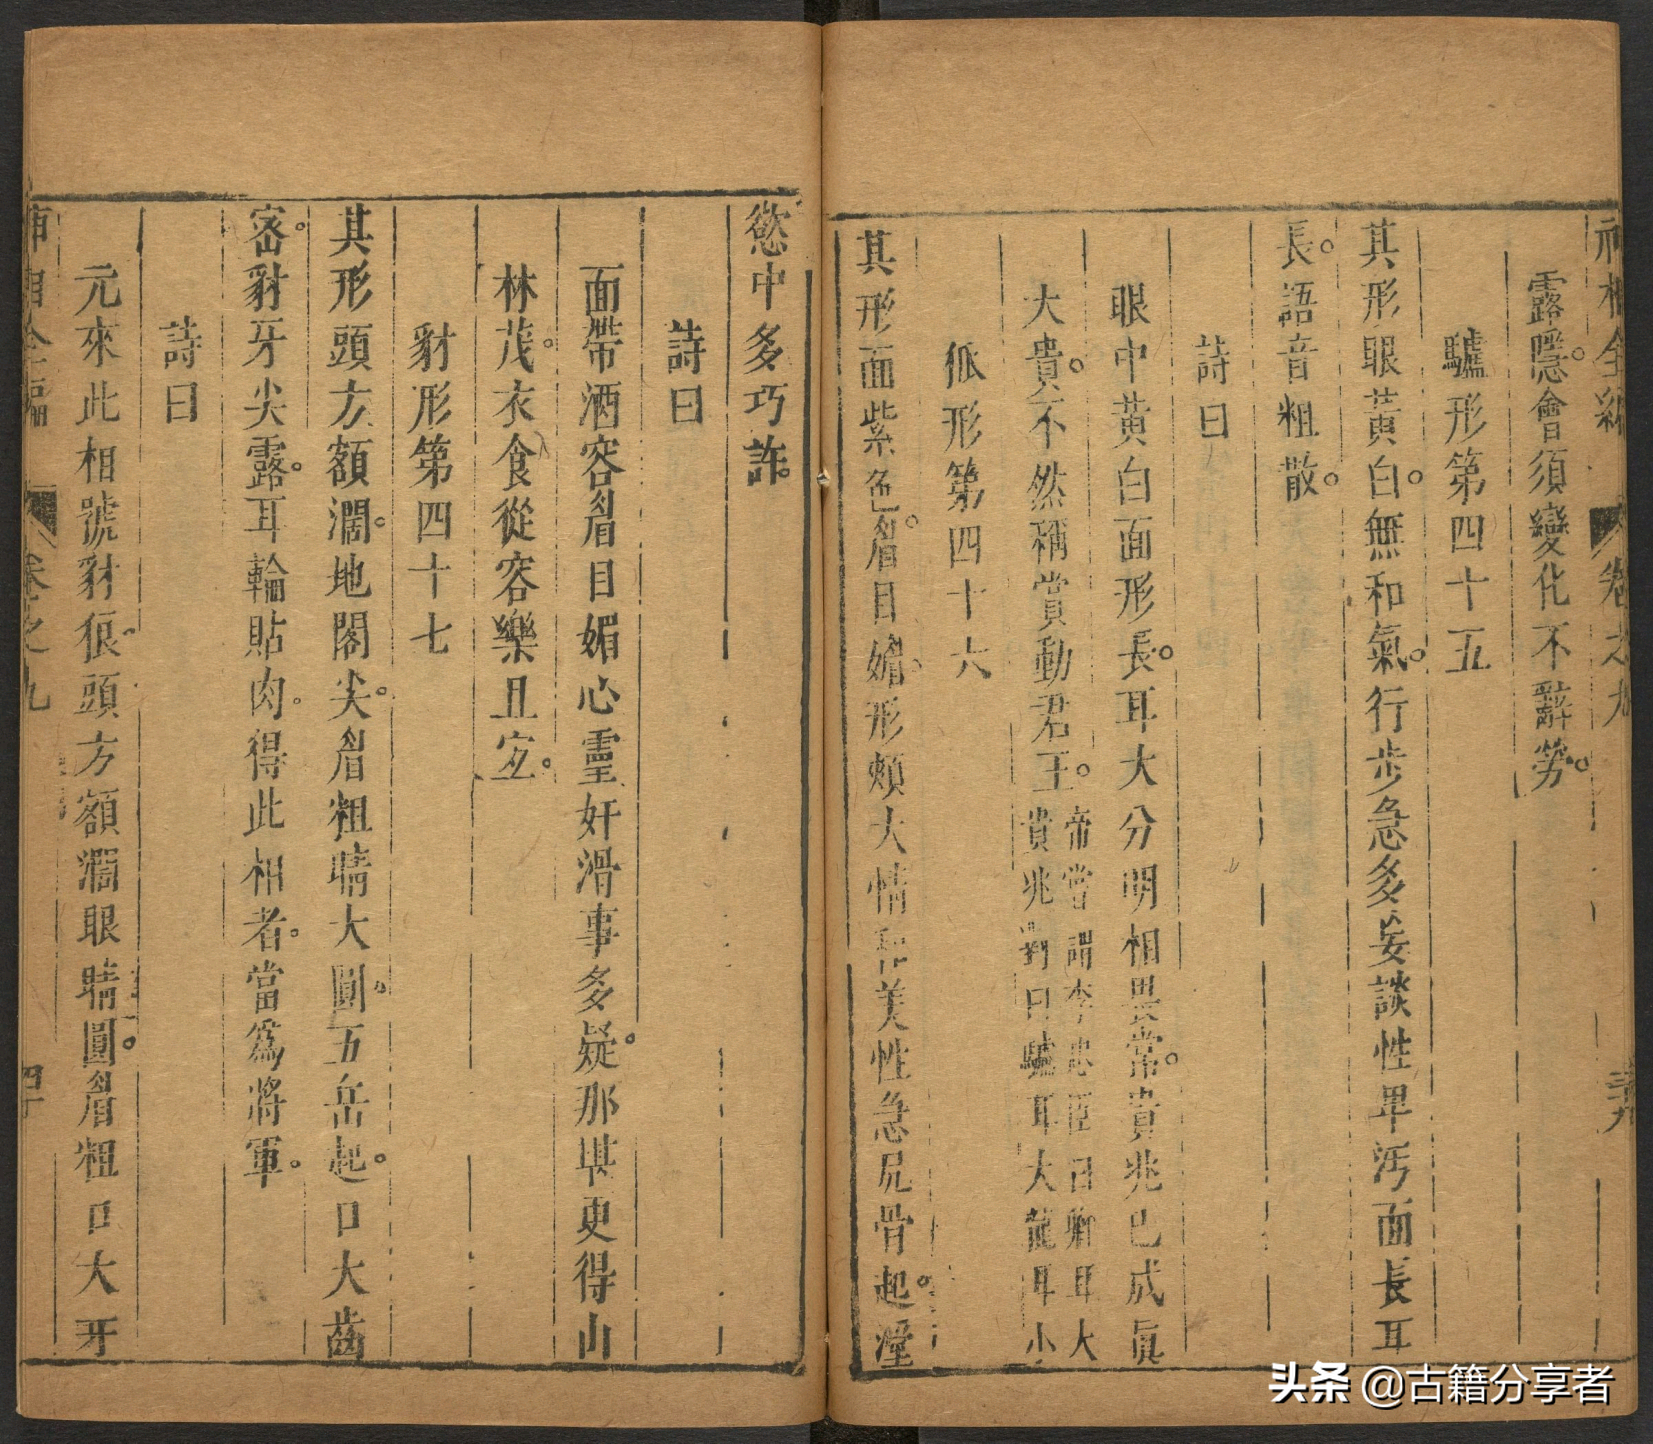 神相全編 卷之九 三十九
露隱會須變化不辭勞
驢形第四十五
其形眼黃白無和氣行步急多妄談性畢污面長耳
長語音粗散
詩曰
眼中黃白面形長耳大分明相異常貴兆已成眞
大貴不然稱賞動君王帝嘗謂李忠臣曰卿耳大
貴兆對曰驢耳大龍耳小
狐形第四十六
其形面紫色眉目媚形頰大情和美性急尻骨起滛
慾中多巧詐
詩曰
面帶酒容眉目媚心靈奸滑事多疑那堪更得山
林茂衣食從容樂且宜
豺形第四十七
其形頭方額濶地閣尖眉粗睛大圓五岳起口大齒
密豺牙尖露耳輪貼肉得此相者當爲將軍
詩曰
元來此相號豺狼頭方額濶眼睛圓眉粗口大牙
神相全編 卷之九 四十
头条 @古籍分享者